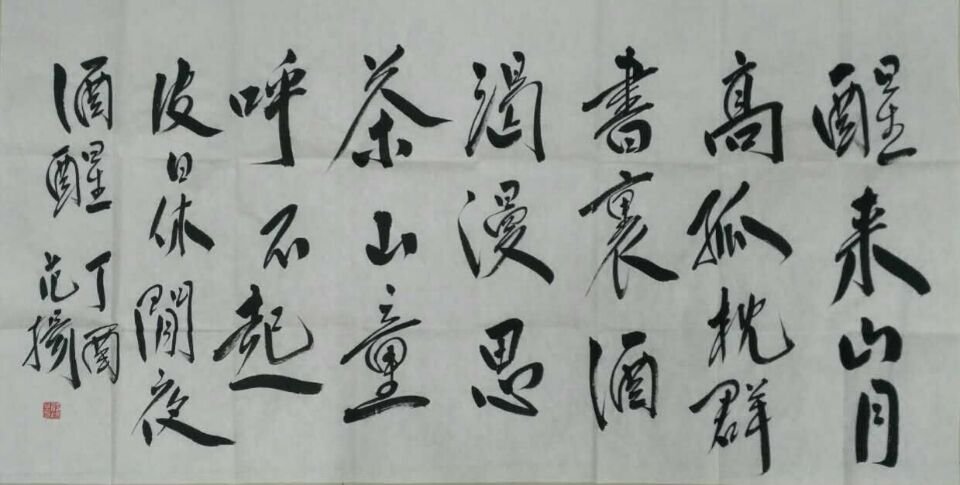 醒来山月
高孤枕群
書裏酒
渴漫思
茶山童
呼不起
皮日休閒夜
酒醒 丁酉
范揚